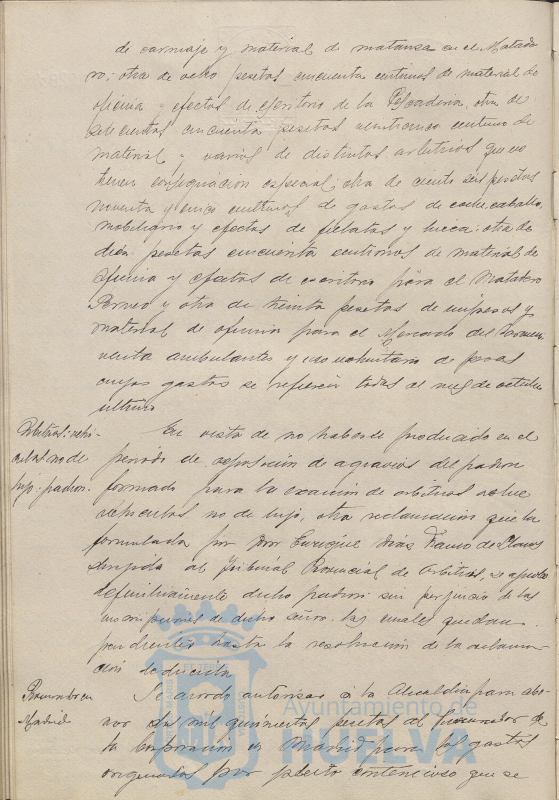 de carruaje y material de matanza en el Matade
ro; otra de ocho pesetas cincuenta centimos de material de
oficina y efectos de escritorio de la Pescaderia, otra de
setecientas cincuenta pesetas veinticinco centimos de
material y varios de distintos arbitrios que no
tienen consignacion especial; otra de ciento seis pesetas
noventa y cinco centimos de gastos de coche, caballo,
mobiliario y efectos de fielatos y
diez pesetas cincuenta centimos de material de
oficina y efectos de escritorio para el Matadero
y otra de treinta pesetas de impresos y
material de oficina para el Mercado del Carmen,
venta ambulante y uso voluntario de pesas
cuyos gastos se refieren todas al mes de octubre
ultimo
Arbitrios: vehi-
culos no de
lujo. padron.
En vista de no haberse producido en el
periodo de exposición de agravios del padron
formado para la exacción de arbitrios sobre
vehiculos no de lujo, otra reclamación que la
formulada por Don Enrique Diaz Franco de Llanos
dirigida al Tribunal Provincial de Arbitrios, se aprueba
definitivamente dicho padron sin perjuicio de las
de dicho señor, las cuales quedan
pendientes hasta la resolución de la reclama-
ción deducida
Procurador en
Madrid
Se acordó autorizar a la Alcaldia para abo-
nar dos mil quinientas pesetas al procurador de
la Corporación en Madrid para los gastos
originados por pleito contencioso que se
Ayuntamiento de
HUELVA